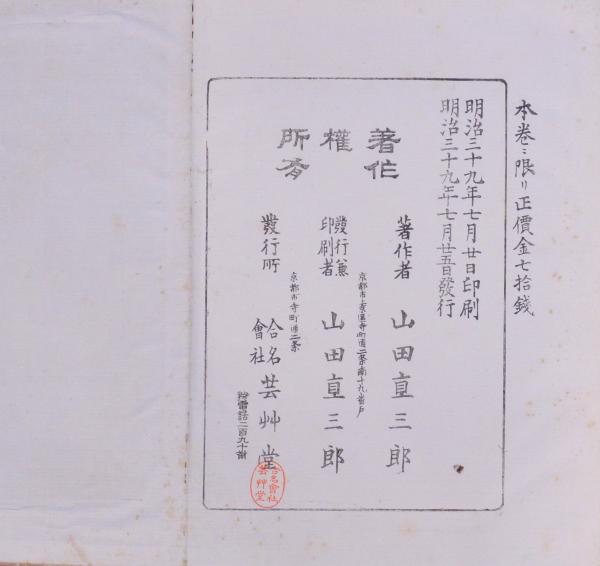 本卷ニ限リ正價金七拾錢
明治三十九年七月廿日印刷
明治三十九年七月廿五日發行
著作權所有
著作者 山田直三郎
京都市上京區寺町通二条南十九番戸
發行兼印刷者 山田直三郎
京都市寺町通二条
發行所 合名會社 芸艸堂
電話二百九十番
合名會社
芸艸堂